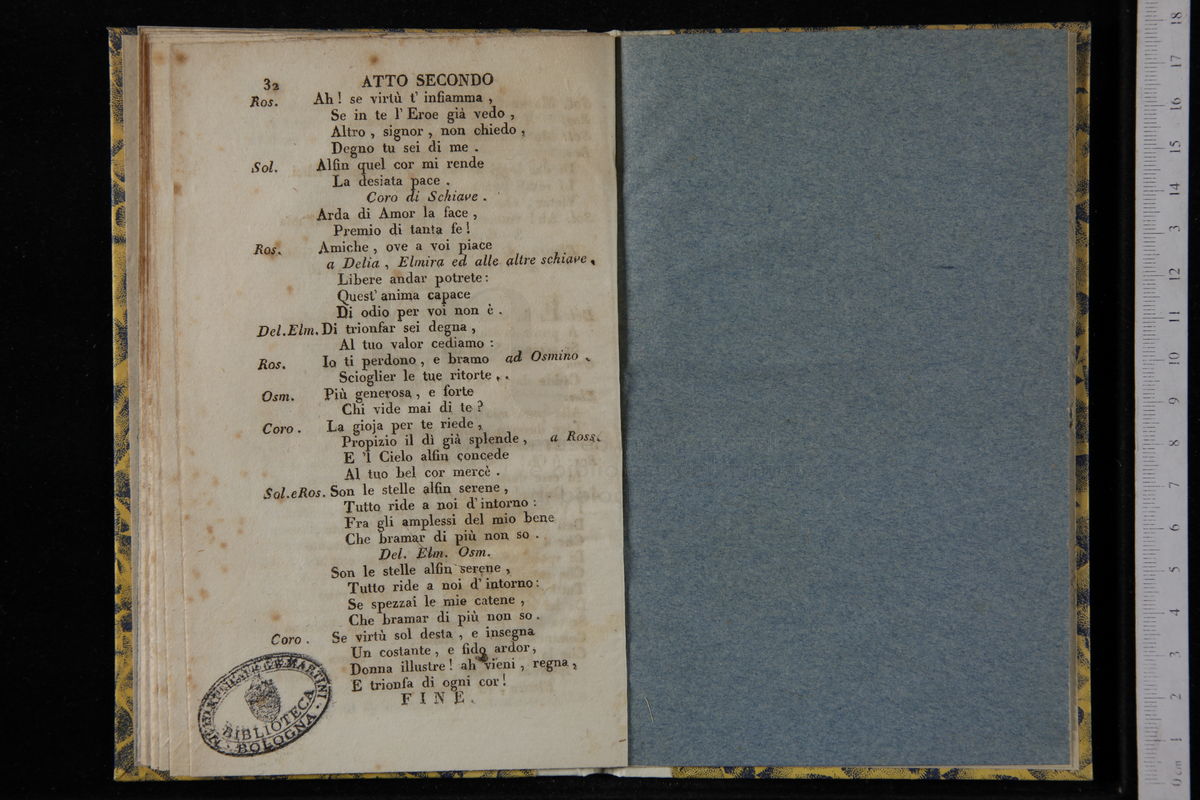 32 ATTO SECONDO
Ros. Ah! se virtù t' infiamma ,
Se in te l' Eroe già vedo ,
Altro , signor , non chiedo ,
Degno tu sei di me .
Sol. Alfin quel cor mi rende
La desiata pace .
Coro di Schiave .
Arda di Amor la face ,
Premio di tanta fe !
Ros. Amiche , ove a voi piace
a Delia , Elmira ed alle altre schiave .
Libere andar potrete :
Quest' anima capace
Di odio per voi non è .
Del. Elm. Di trionfar sei degna ,
Al tuo valor cediamo :
Ros. Io ti perdono , e bramo ad Osmino .
Scioglier le tue ritorte . .
Osm. Più generosa , e forte
Chi vide mai di te ?
Coro . La gioja per te riede ,
Propizio il dì già splende , a Ross.
E 'l Cielo alfin concede
Al tuo bel cor mercè .
Sol. e Ros. Son le stelle alfin serene ,
Tutto ride a noi d' intorno :
Fra gli amplessi del mio bene
Che bramar di più non so .
Del. Elm. Osm.
Son le stelle alfin serene ,
Tutto ride a noi d' intorno :
Se spezzai le mie catene ,
Che bramar di più non so .
Coro . Se virtù sol desta , e insegna
Un costante , e fido ardor ,
Donna illustre ! ah vieni , regna ,
E trionfa di ogni cor !
FINE .
MARTINI
BIBLIOTECA
BOLOGNA
0 cm 1 2 3 4 5 6 7 8 9 10 11 12 3 14 15 16 17 18